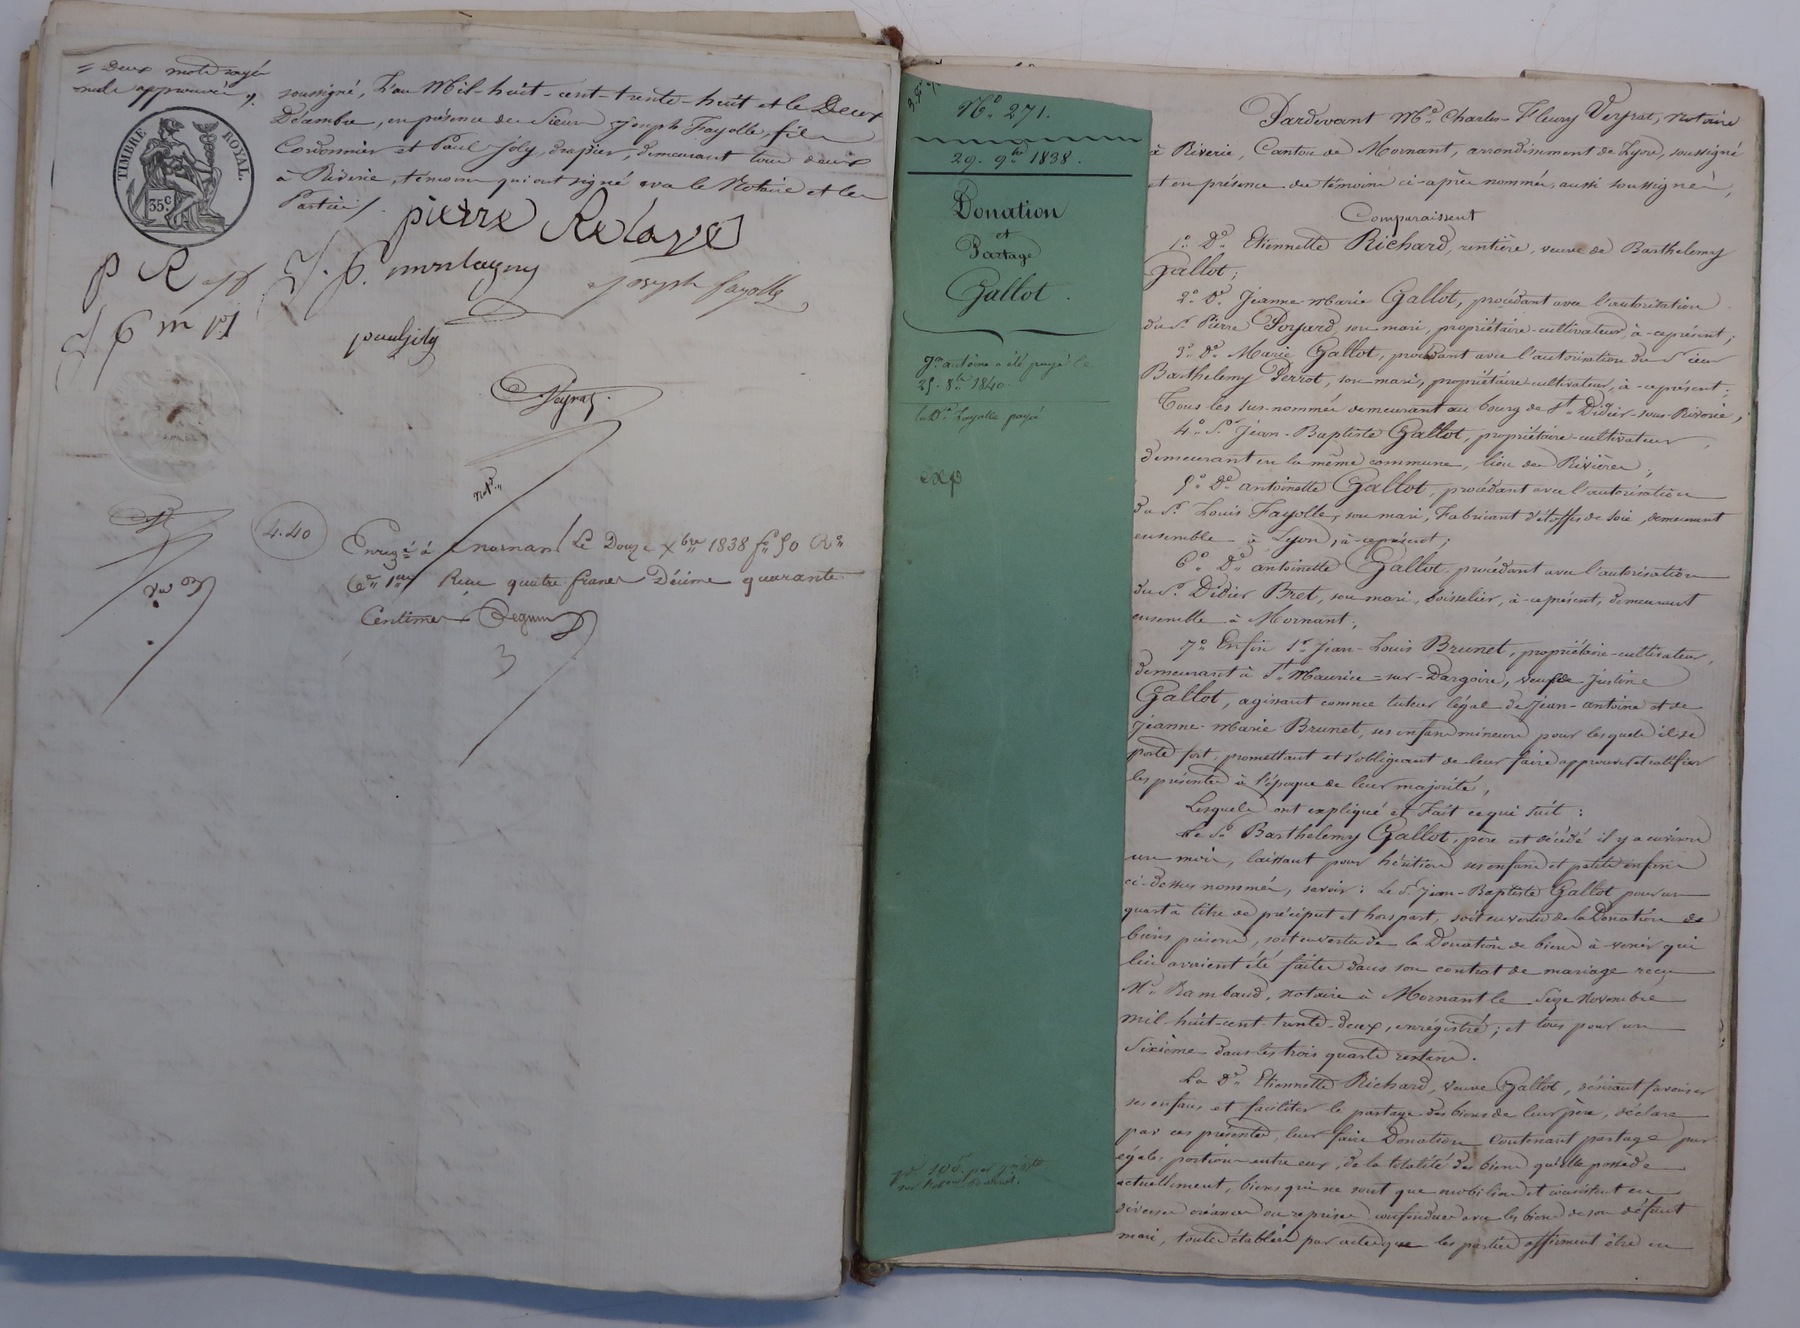 = Deux mots rayés
nuls approuvés
TIMBRE ROYAL.
35c
soussigné, L'an Mil-huit-cent-trente-huit et le Deux
Décembre, en présence des Sieurs Joseph Fayolle, fils
Cordonnier et Paul Joly, drapier, demeurant tous deux
à Riverie, témoins qui ont signé avec le Notaire et les
Parties.
pierre Relave
P R
J. P. montagny
joseph fayolle
J P m
pauljoly
Veyrat
Not.re
4.40
Enreg.é à mornant Le Douze Xbre 1838 f.o 50 R.o
C.es 1.er Reçu quatre francs Décime quarante
Centimes
3
N.o 271.
29. 9bre 1838.
Donation
et
Partage
Gallot.
J.n antoine a été payé le
25. 8bre 1840.
le S.r Fayolle payé
exp
Pardevant M.e Charles-Fleury Veyrat, notaire
à Riverie, Canton de Mornant, arrondissement de Lyon, soussigné
et en présence des témoins ci-après nommés, aussi soussignés,
Comparaissent
1.o D.e Etiennette Richard, rentière, veuve de Barthelemy
Gallot;
2.o D.e Jeanne Marie Gallot, procédant avec l'autorisation
du S.r Pierre Poyard, son mari, propriétaire-cultivateur, à-ce présent;
3.o D.e Marie Gallot, procédant avec l'autorisation du Sieur
Barthelemy Perrot, son mari, propriétaire-cultivateur, à-ce présent;
Tous les sus-nommés demeurant au bourg de St. Didier-sous-Riverie;
4.o S.r Jean-Baptiste Gallot, propriétaire-cultivateur,
demeurant en la même commune, lieu des Rivières;
5.o D.e antoinette Gallot, procédant avec l'autorisation
du S.r Louis Fayolle, son mari, Fabricant d'étoffes de soie, demeurant
ensemble à Lyon, à-ce présent;
6.o D.e antoinette Gallot, procédant avec l'autorisation
du S.r Didier Bret, son mari, boisselier, à-ce présent, demeurant
ensemble à Mornant;
7.o Enfin S.r Jean-Louis Brunet, propriétaire-cultivateur,
demeurant à St. Maurice-sur-Dargoire, veuf de Justine
Gallot, agissant comme tuteur légal de Jean-antoine et de
Jeanne-Marie Brunet, ses enfans mineurs pour lesquels il se
porte fort, promettant et s'obligeant de leur faire approuver et ratifier
les présentes à l'époque de leur majorité,
Lesquels ont expliqué et Fait ce qui suit :
Le S.r Barthelemy Gallot, père est décédé il y a environ
un mois, laissant pour héritiers ses enfans et petits enfans
ci-dessus nommés, savoir : Le S.r Jean-Baptiste Gallot pour un
quart à titre de préciput et hors part, soit en vertu de la Donation de
biens présens, soit en vertu de la Donation de biens à venir qui
lui avaient été faites dans son contrat de mariage reçu
M.e Rambaud, notaire à Mornant le Seize Novembre
mil-huit-cent-trente-deux, enregistré; et tous pour un
Sixième dans les trois quarts restans.
La D.e Etiennette Richard, veuve Gallot, désirant favoriser
ses enfans et faciliter le partage des biens de leur père, déclare
par ces présentes, leur faire Donation contenant partage par
égales portions entre eux, de la totalité des biens qu'elle possède
actuellement, biens qui ne sont que mobiliers et consistent en
diverses créances ou reprises confondues avec les biens de son défunt
mari, toutes établies par actes que les parties affirment être en